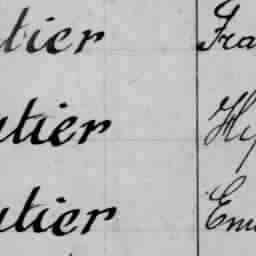 tier Fra
utier Hy
utier Em